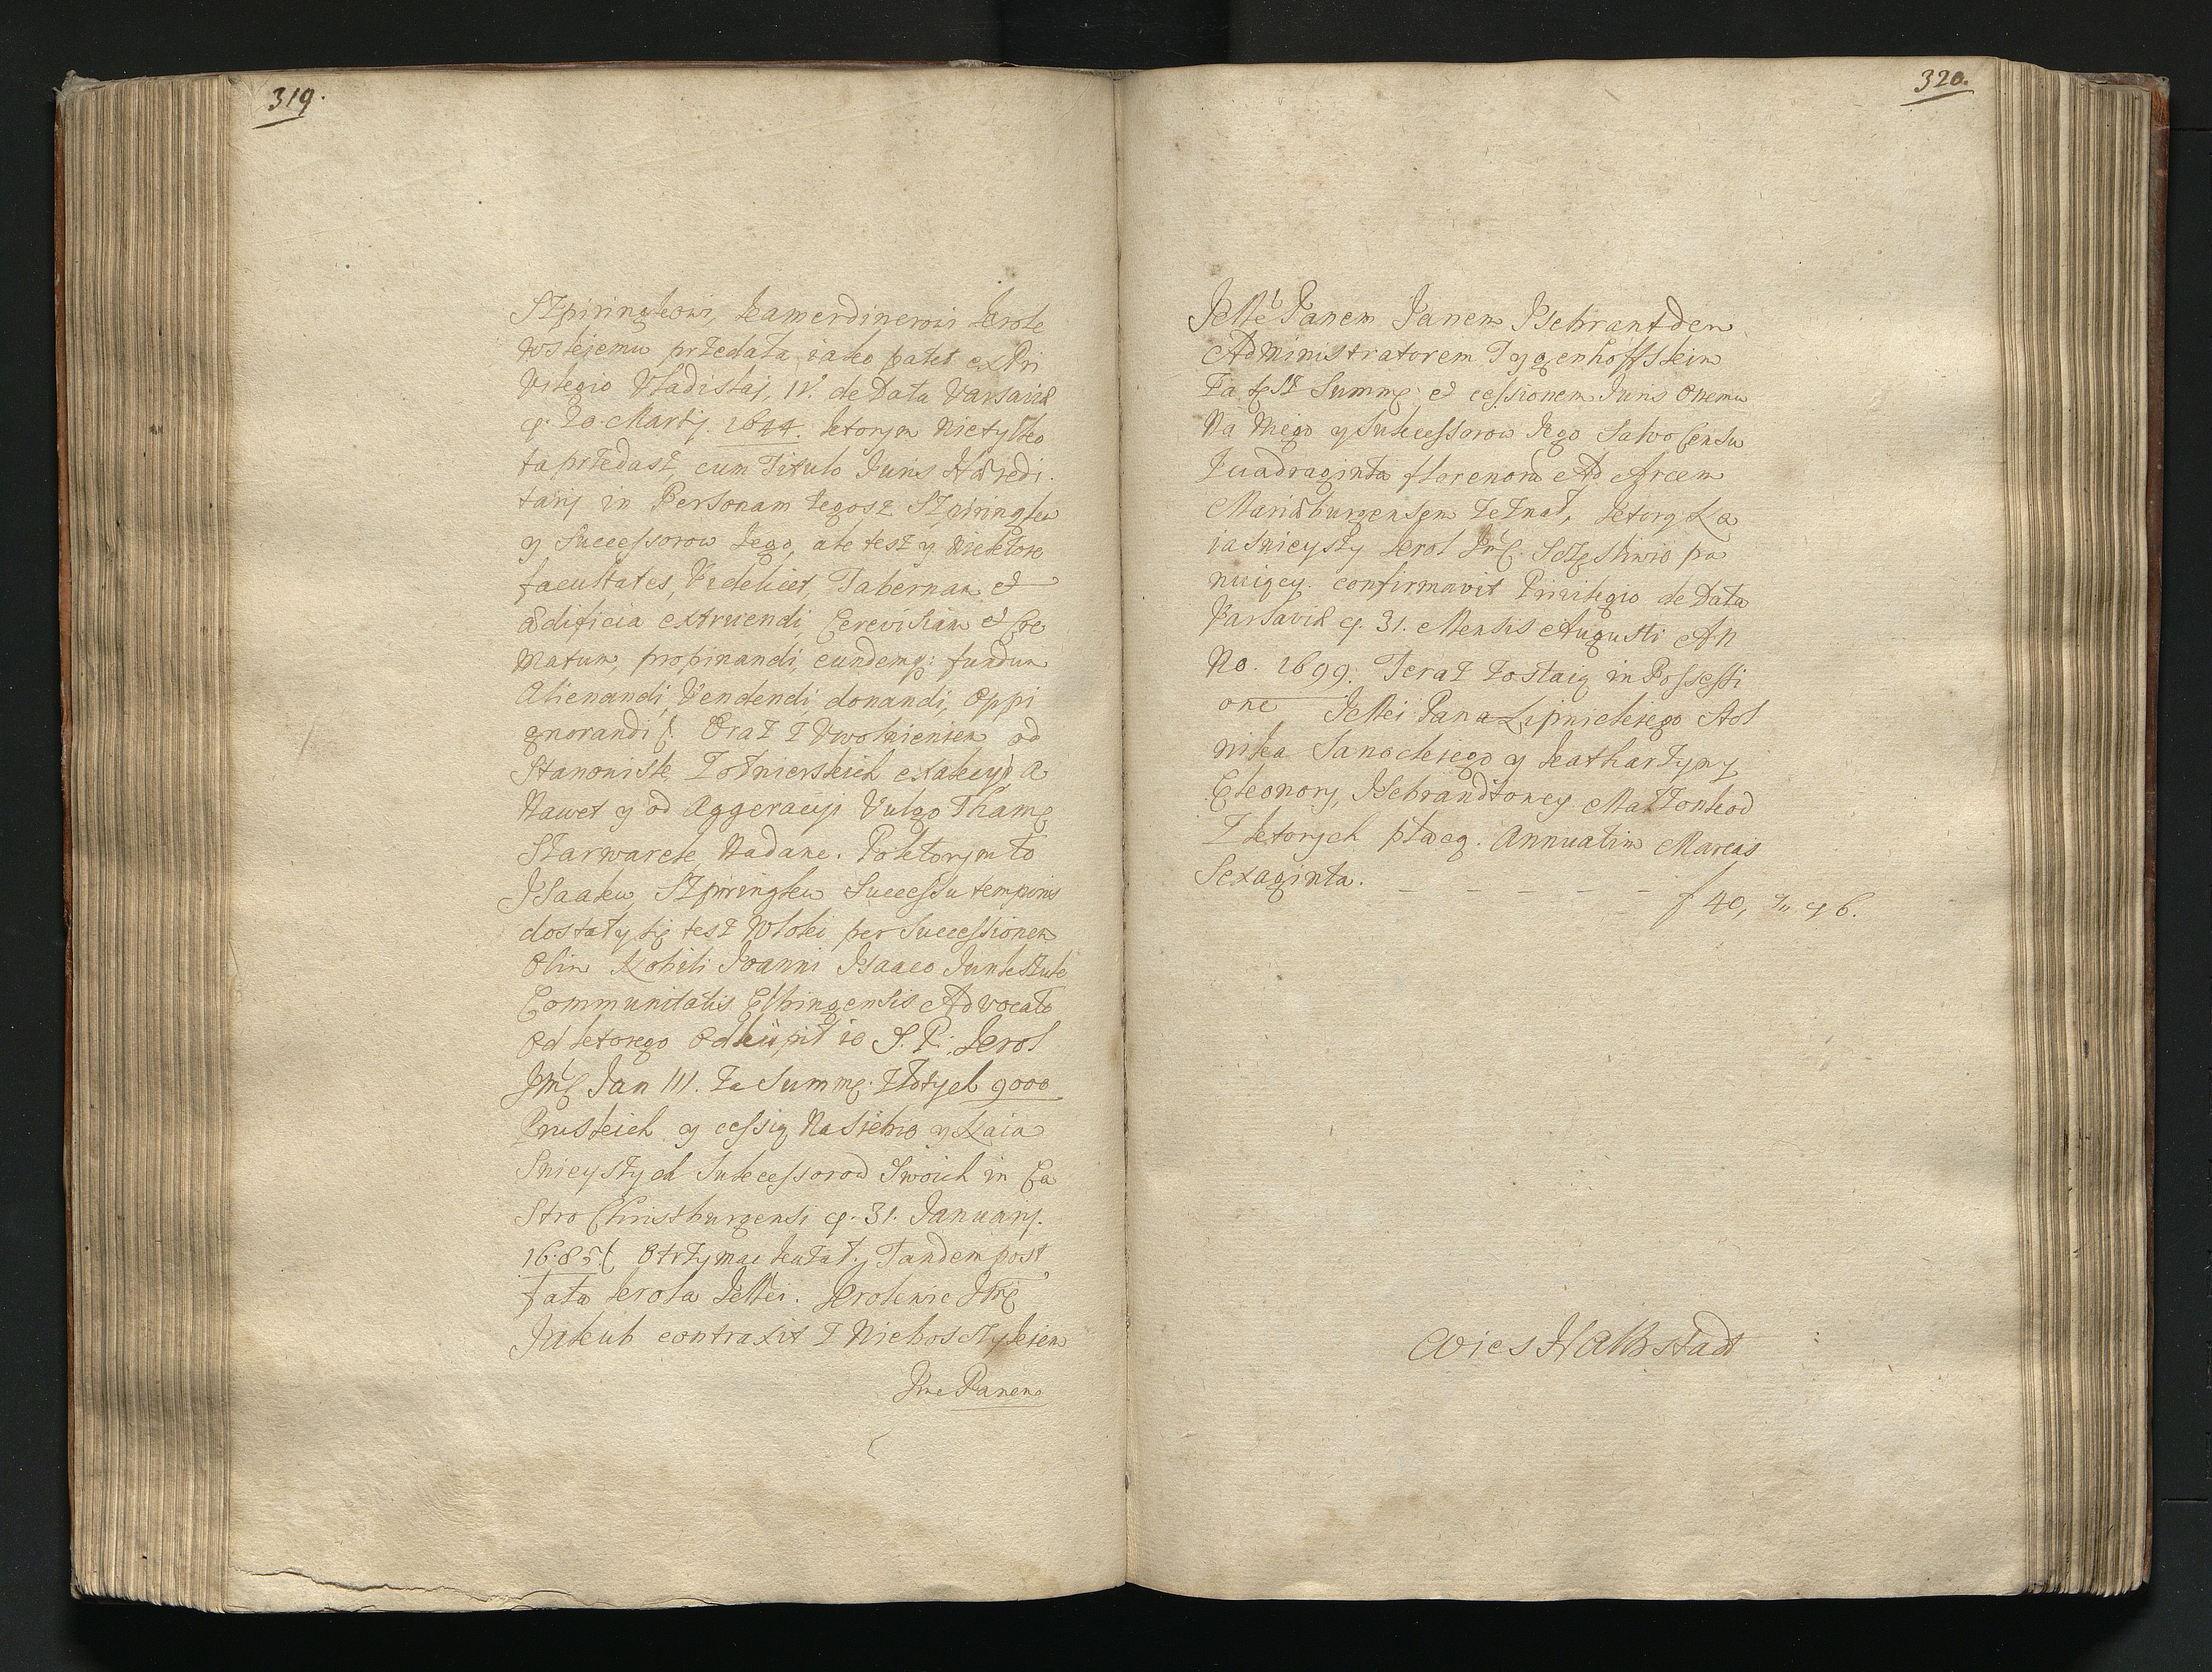 319.
Szpiringkowi, kamerdinerowi krole
wskiemu przedała iako patet ex Pri
vilegio Vladislaj, IV. de Data Varsaviæ
20 Martij 1644. ktorym nietylko
ta przedasz, cum Titulo Juris Hæredi.
tarij in Personam tegosz Szpiringka
y Successorow Jego, ale tesz y niektore
facultates, Videlicet, Tabernam et
ædificia extruendi, Cerevisiam et Cre
matum, propinandi, eundemq: fundum
Alienandi, Vendendi, donandi, Oppi
gnorandi. Oraz z Uwolnieniem od
Stanowisk, Zołnierskich exakcyi a
Nawet y od Aggeracyi Vulgo Thamę
Szarwarek, Nadane. Po ktorym to
Isaaku, Szpiringku Successu temporis
dostały się tesz Włoki per Successionem
Olim Nobili Joanni Isaaco
Communitatis Elbingensis Advocato
Od ktorego Odkupił ie S. P. Krol
Jmć Jan III. Za Summę Złotych 9000
Pruskich y cessią Na Siebie y Naia
snieyszych Sukcessorow Swoich in Ca
stro Christburgensi 31. Januarij.
1685 Otrzymac kazał, Tandem post
fata krola JeMći. Krolewic Jmć
Jakub contraxit z Nieboszczykiem
Jme Panem
320.
JeMć Panem Janem Jsebrantden
Administratorem Tygenhoffskim
Za tęsz Summę et cessionem Juris Onemu
Na Niego y Sukcessorow Jego Salvo Censu
Quadraginta florenorū Ad Arcem
Mariæburgensem Zeznał, ktorą Na
iasnieyszy krol Jmć Szczęsliwie pa
nuiący. confirmavit Privilegio de Data
Varsaviæ 31. Mensis Augusti An
No. 1699. Teraz zostaią in Possessi
one JeMći Pana Lipnickiego Stol
nika Sanockiego y Katharzyny
Eleonory, Jsebrandtowey Małzonkow
Z ktorych płacą. Annuatim Marcas
Sexaginta. _ _ _ _ _ f 40,
Wies Halbstadt